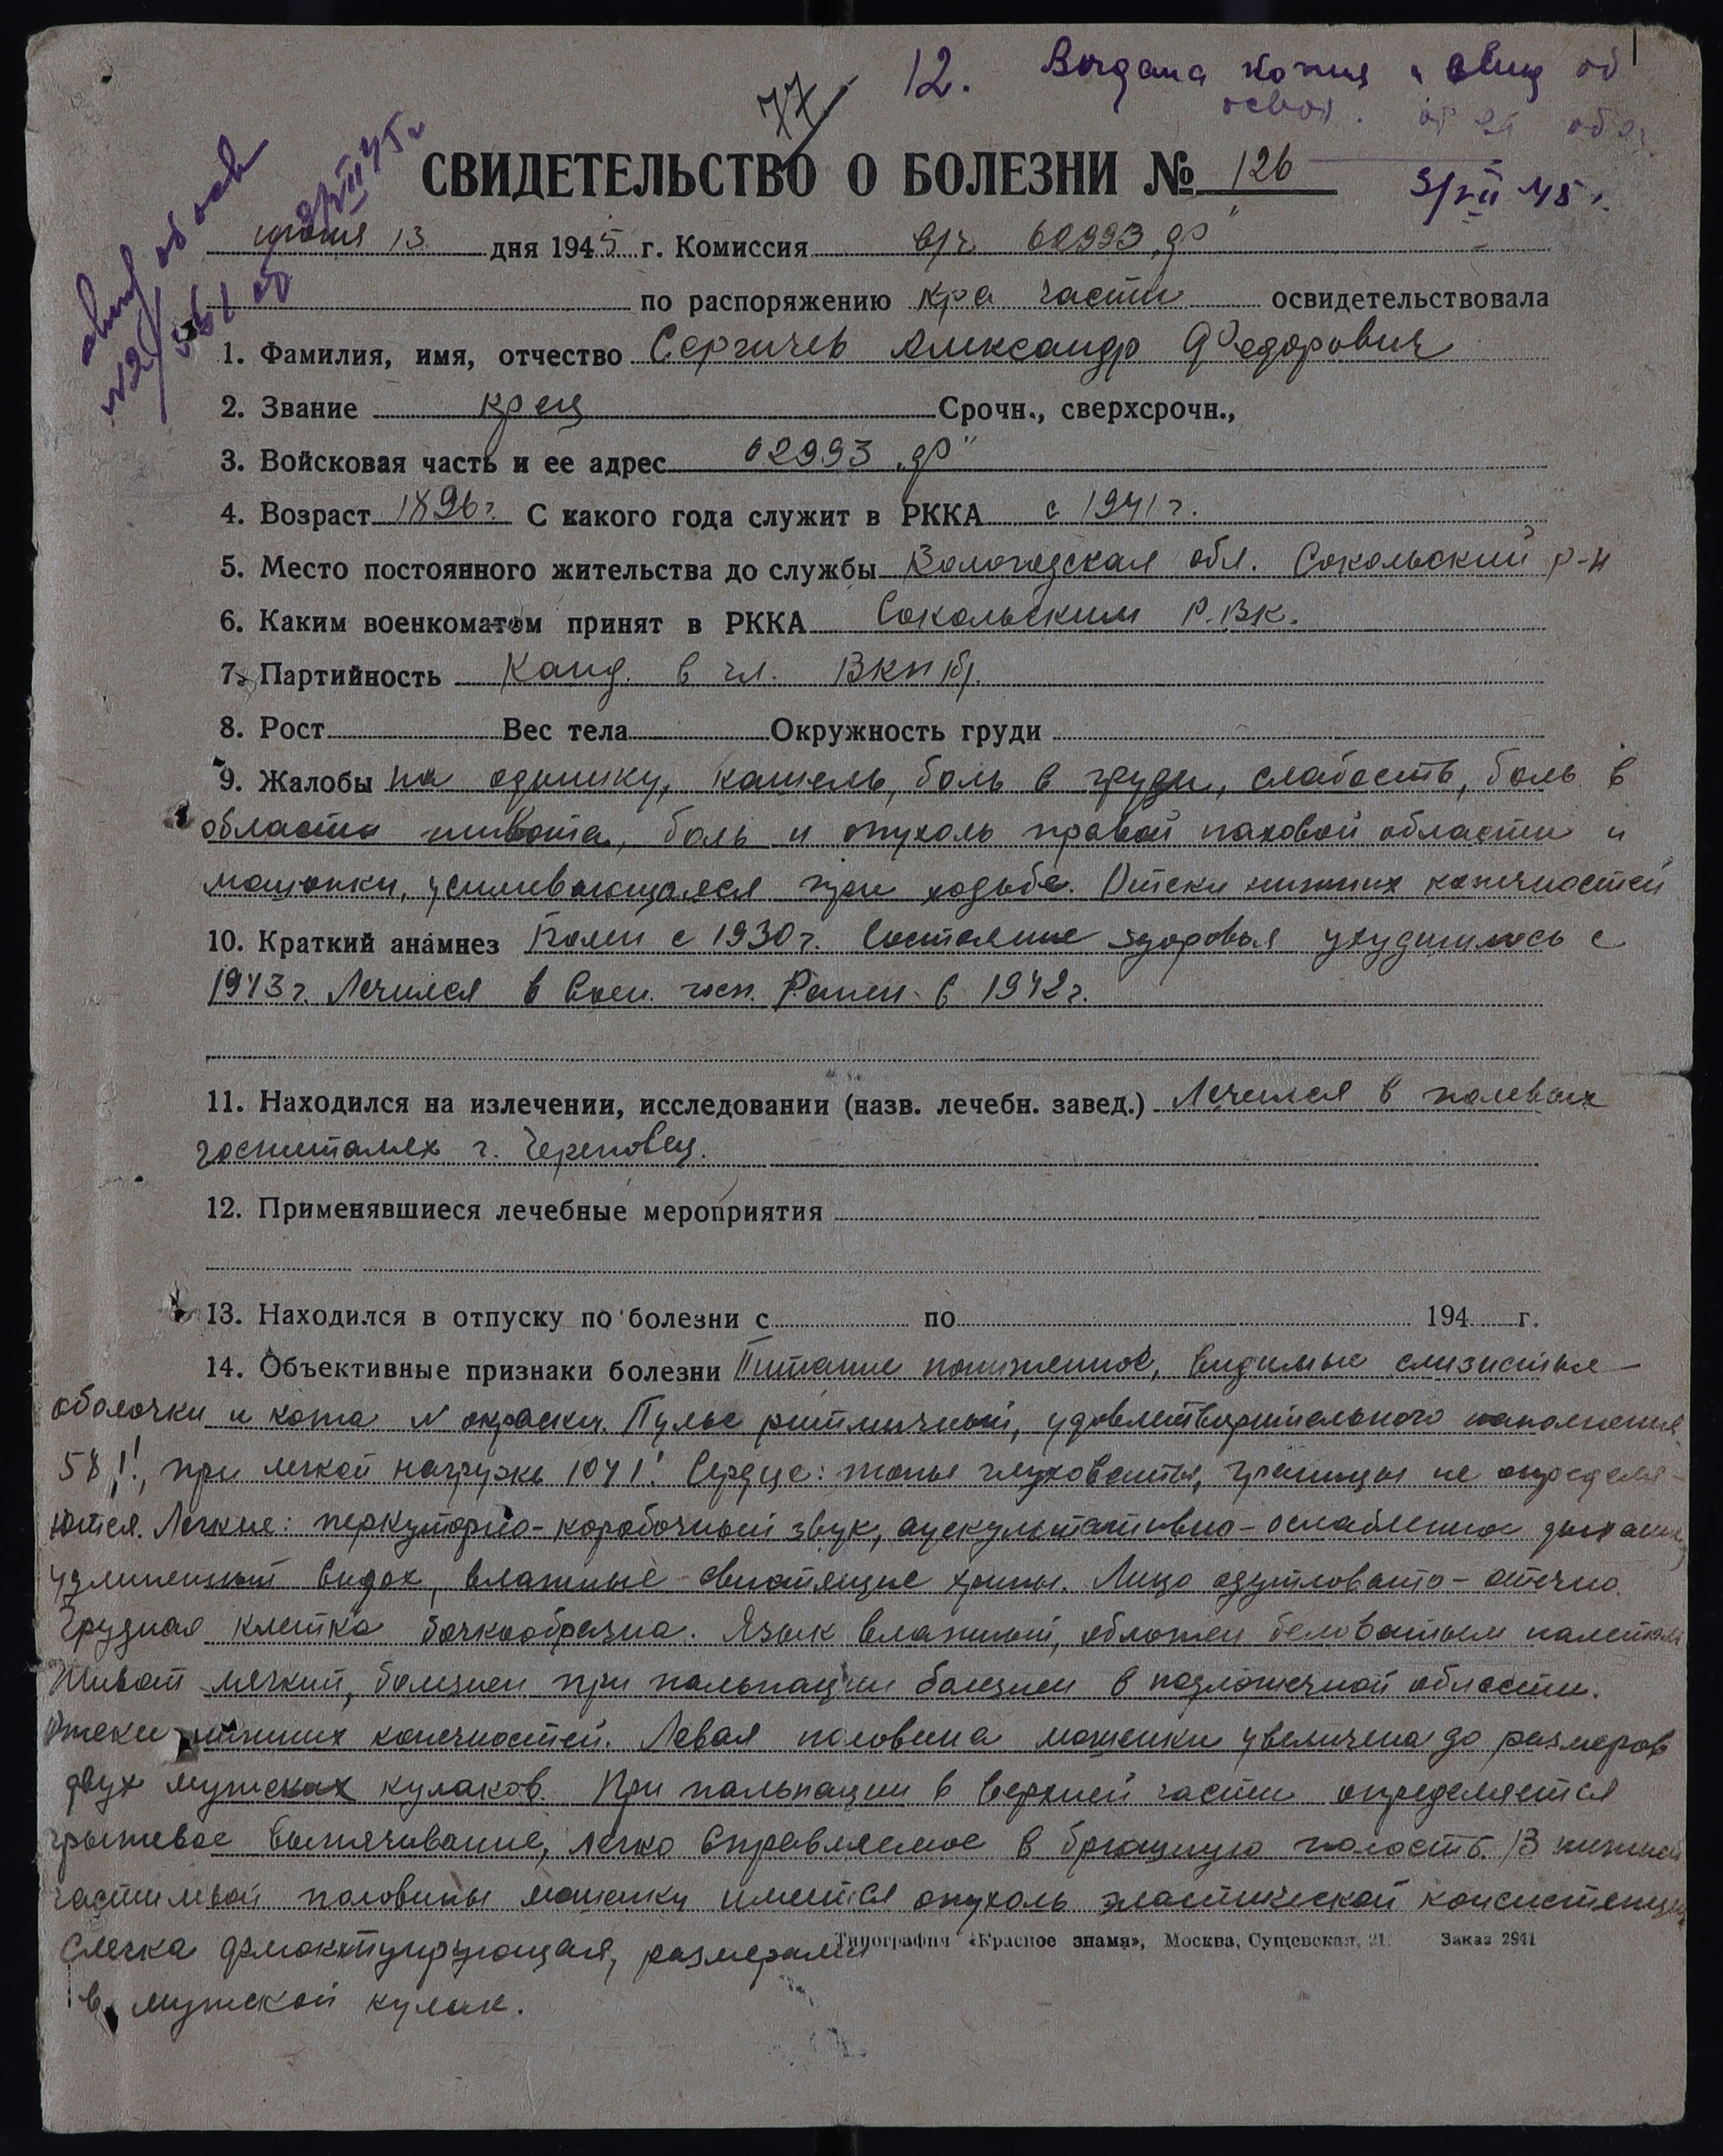 12. Выдана копия и свид об
77
освоб. от
СВИДЕТЕЛЬСТВО О БОЛЕЗНИ № 126
3/VII 45 г.
свид об осв
3/VII 45 г
№ 2/
июня 13 дня 1945 г. Комиссия в/ч 02993 „Ф"
по распоряжению к-ра части освидетельствовала
1. Фамилия, имя, отчество Сергичев Александр Федорович
2. Звание кр-ец Срочн., сверхсрочн.,
3. Войсковая часть и ее адрес 02993 „Ф"
4. Возраст 1896 г. С какого года служит в РККА с 1941 г.
5. Место постоянного жительства до службы Вологодская обл. Сокольский р-н
6. Каким военкоматом принят в РККА Сокольским Р.В.К.
7. Партийность Канд. в чл. ВКП(б).
8. Рост Вес тела Окружность груди
9. Жалобы на одышку, кашель, боль в груди, слабость, боль в
области живота, боль и опухоль правой паховой области и
мошонки, усиливающаяся при ходьбе. Отеки нижних конечностей
10. Краткий анамнез Болен с 1930 г. Состояние здоровья ухудшилось с
1943 г. Лечился в воен. госп. Ранен в 1942 г.
11. Находился на излечении, исследовании (назв. лечебн. завед.) Лечился в полевых
госпиталях г. Череповец.
12. Применявшиеся лечебные мероприятия
13. Находился в отпуску по болезни с по 194 г.
14. Объективные признаки болезни Питание пониженное, видимые слизистые
оболочки и кожа N окраски. Пульс ритмичный, удовлетворительного наполнения
58 1!, при легкой нагрузке 104 1! Сердце: тоны глуховаты, границы не определя-
ются. Легкие: перкуторно - коробочный звук, аускультативно - ослабленное дыхание,
удлиненный выдох, влажные свистящие хрипы. Лицо одутловато - отечно.
Грудная клетка бочкообразна. Язык влажный, обложен беловатым налетом
Живот мягкий, болезнен при пальпации болезнен в подложечной области.
Отеки нижних конечностей. Левая половина мошонки увеличена до размеров
двух мужских кулаков. При пальпации в верхней части определяется
грыжевое выпячивание, легко вправляемое в брюшную полость. В нижней
части левой половины мошонки имеется опухоль эластической консистенции
Слегка флюктуирующая, размерами
в мужской кулак.
Типография «Красное знамя», Москва, Сущевская, 21. Заказ 2941